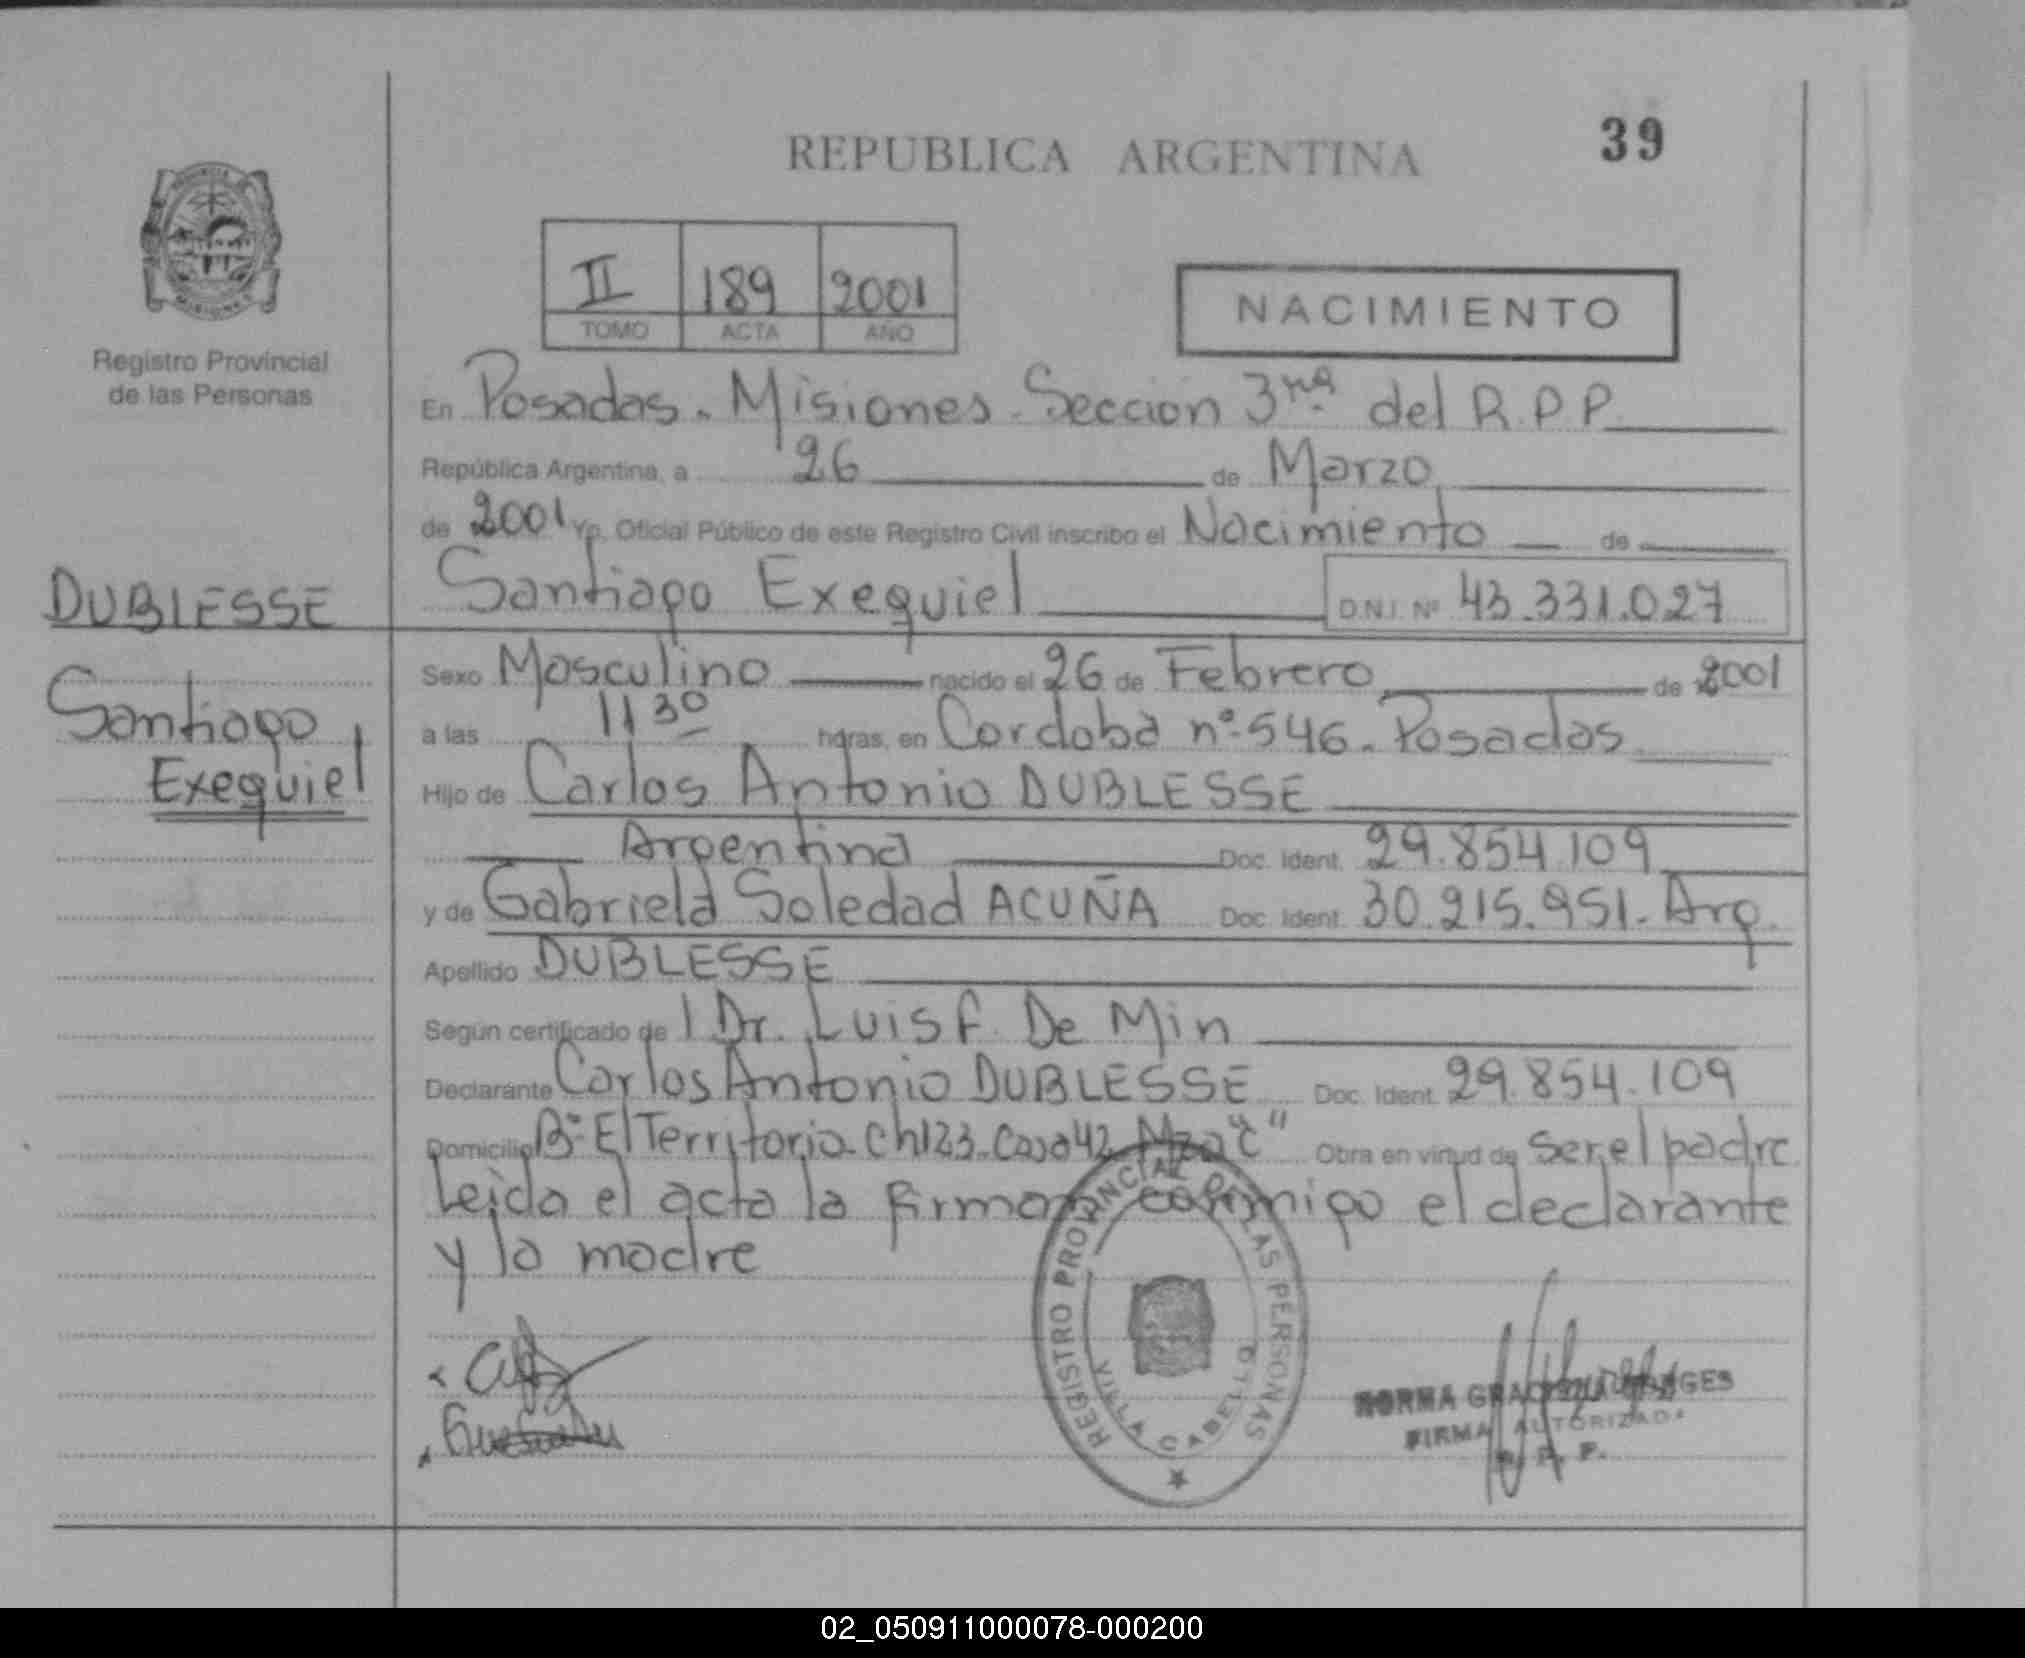 REPUBLICA ARGENTINA
39
II 189 2001
TOMO ACTA AÑO
NACIMIENTO
Registro Provincial
de las Personas
En Posadas. Misiones. Sección 3ra del R.P.P.
República Argentina, a 26 de Marzo
de 2001 Yo, Oficial Público de este Registro Civil inscribo el Nacimiento de
DUBLESSE
Santiago Exequiel D.N.I. Nº 43.331.027
Santiago
Exequiel
Sexo Masculino nacido el 26 de Febrero de 2001
a las 11 30 horas, en Cordoba nº 546. Posadas
Hijo de Carlos Antonio DUBLESSE
Argentina Doc. Ident. 29.854.109
y de Gabriela Soledad ACUÑA Doc. Ident. 30.215.951. Arg.
Apellido DUBLESSE
Según certificado de l Dr. Luis F. De Min
Declarante Carlos Antonio DUBLESSE Doc. Ident. 29.854.109
Domicilio Bº El Territorio. Ch 123. Casa 42. Mza "C" Obra en virtud de ser el padre.
Leida el acta la firman conmigo el declarante
y la madre
REGISTRO PROVINCIAL DE LAS PERSONAS
VILLA CABELLO
NORMA
FIRMA AUTORIZADA
R. P. P.
02_050911000078-000200